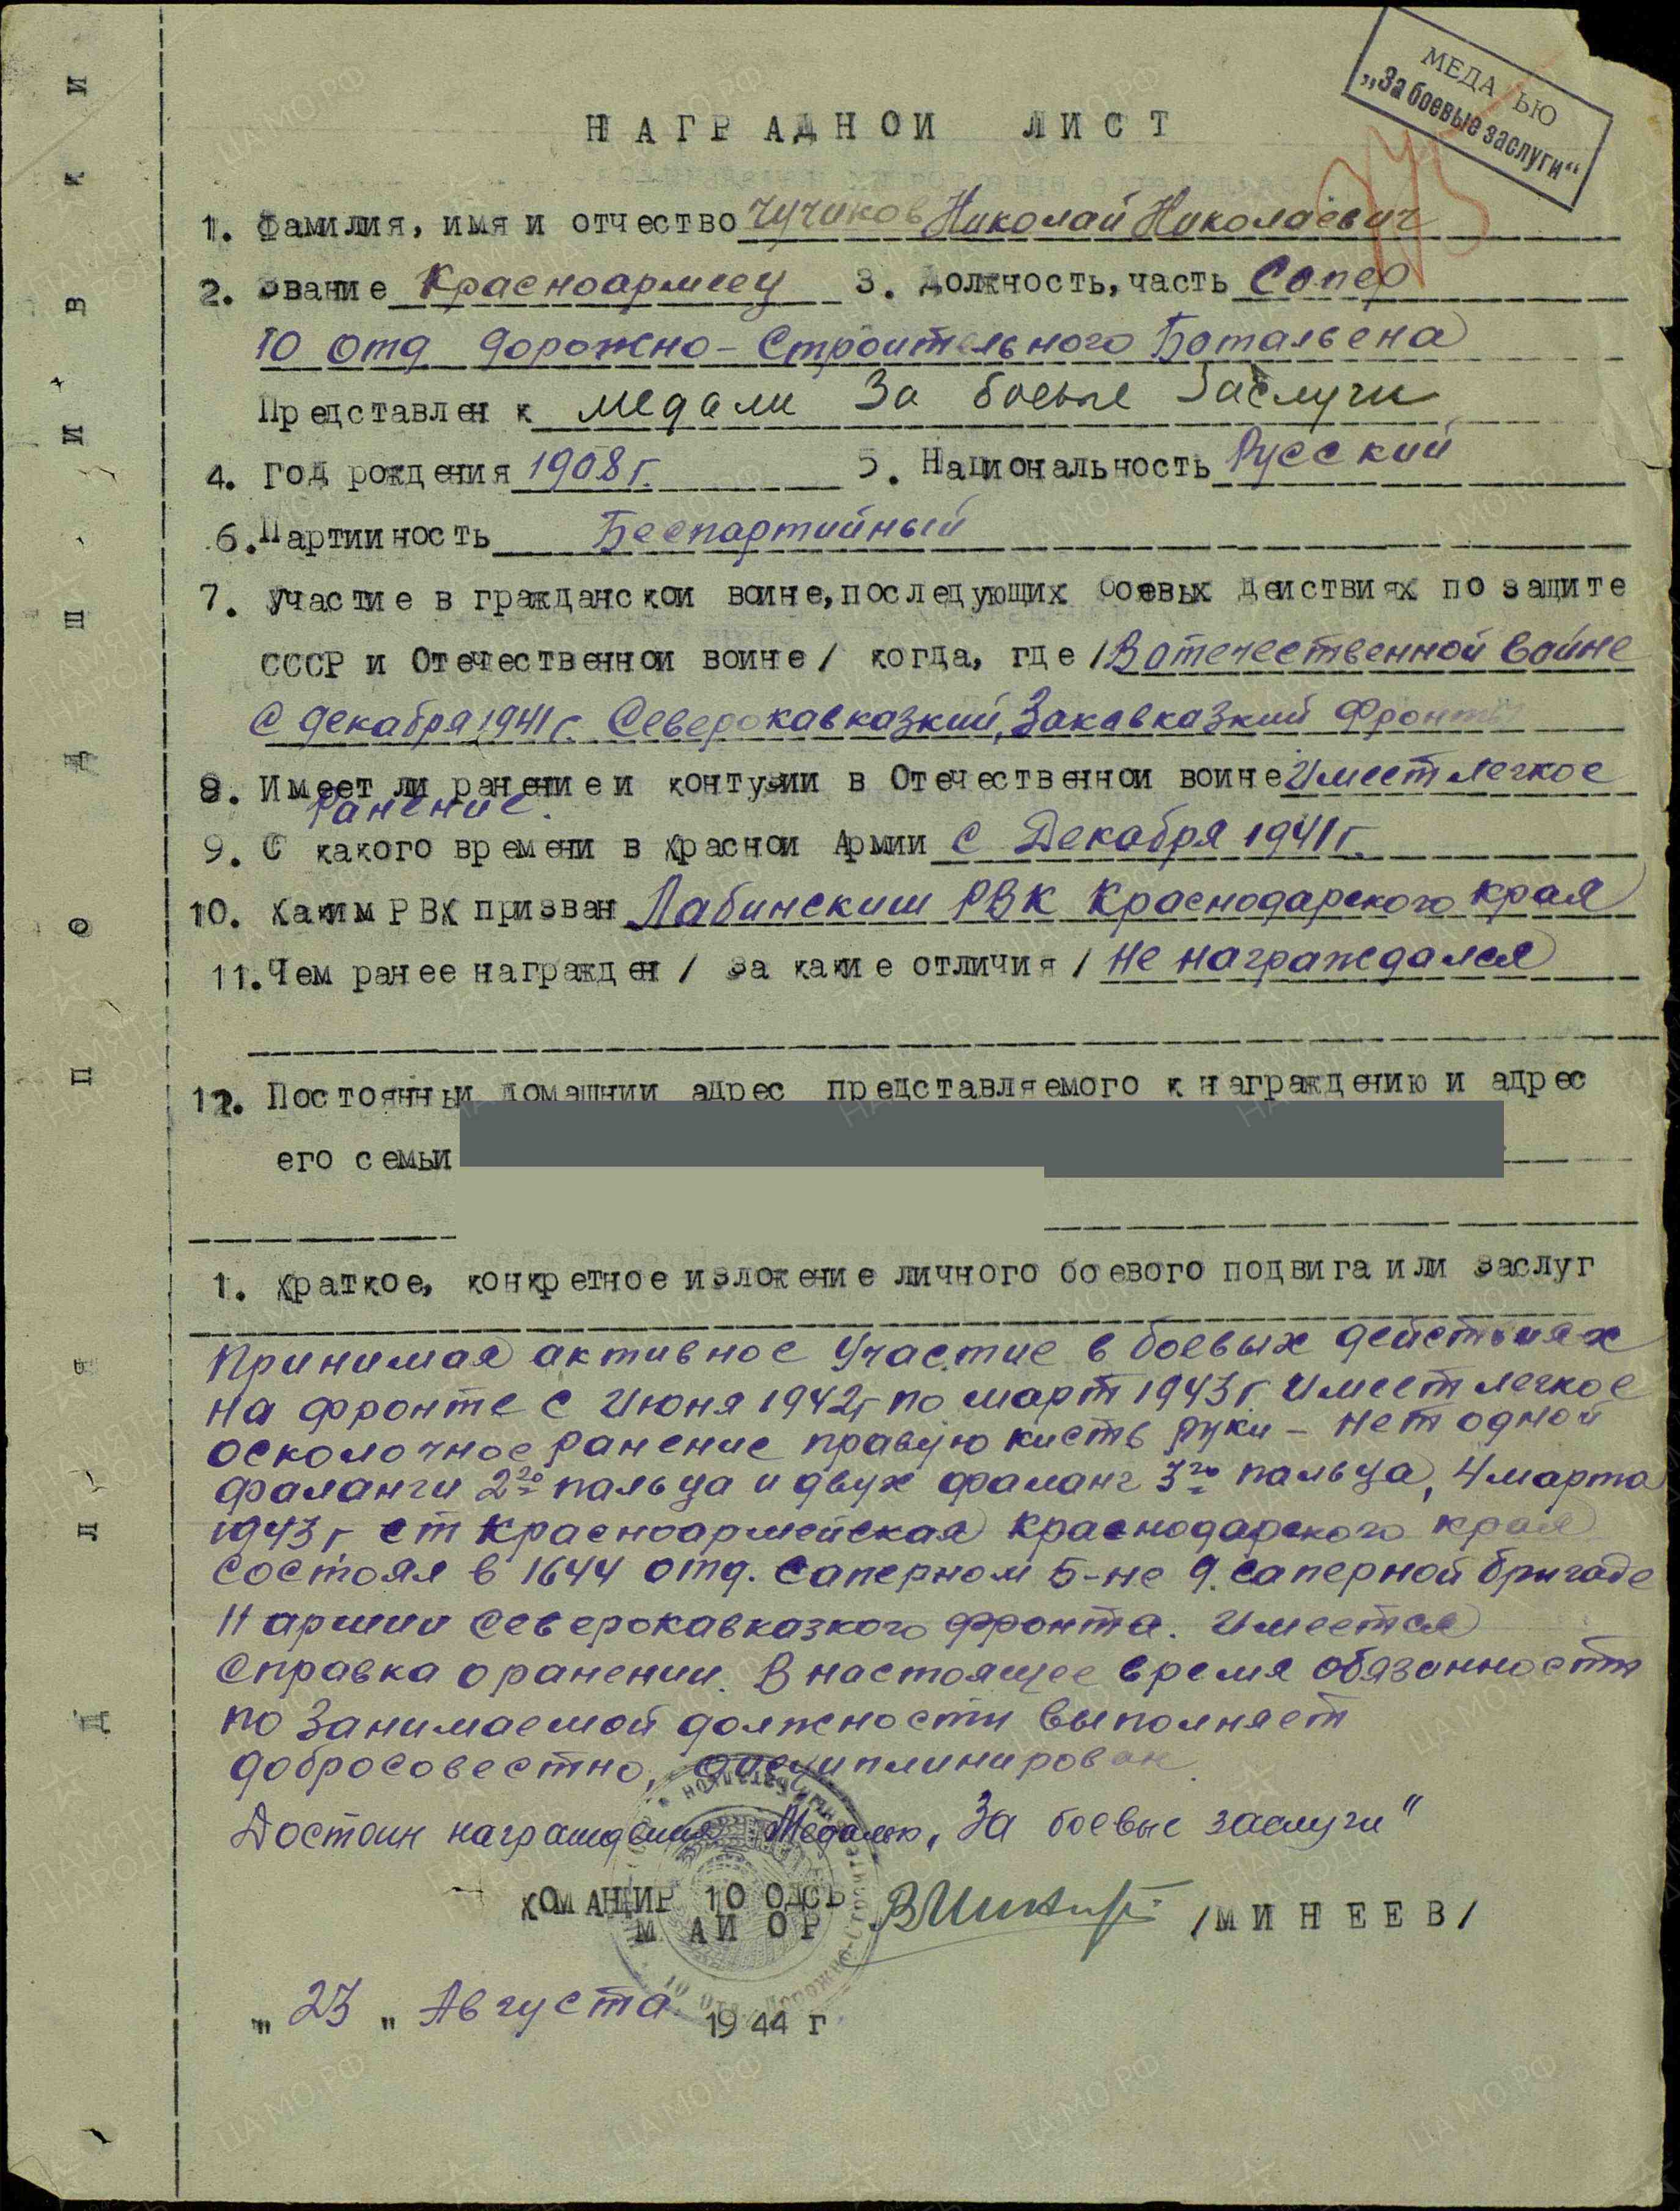 МЕДА ЬЮ
„За боевые заслуги“
НАГРАДНОЙ ЛИСТ
1. Фамилия, имя и отчество Чучиков Николай Николаевич
2. Звание Красноармеец 3. Должность, часть Сапер
10 отд дорожно-Строительного Батальена
Представлен к медали За боевые Заслуги
4. Год рождения 1908 г. 5. Национальность Русский
6. Партийность Беспартийный
7. Участие в гражданской войне, последующих боевых действиях по защите
СССР и Отечественной войне / когда, где / В отечественной войне
С декабря 1941 г. Северокавказкий, Закавказкий Фронты
8. Имеет ли ранение и контузии в Отечественной войне Имеет легкое
ранение.
9. С какого времени в Красной Армии С Декабря 1941 г.
10. Каким РВК призван Лабинским РВК Краснодарского края
11. Чем ранее награжден / за какие отличия / не награждался
12. Постоянный домашний адрес представляемого к награждению и адрес
его семьи
1. Краткое, конкретное изложение личного боевого подвига или заслуг
Принимая активное Участие в боевых действиях
на фронте с Июня 1942 г по март 1943 г Имеет легкое
осколочное ранение правую кисть руки – нет одной
фаланги 2го пальца и двух фаланг 3го пальца, 4 марта
1943 г ст Красноармейская Краснодарского края
состоял в 1644 отд. саперном б-не 9. саперной бригаде
11 армии Северокавказкого фронта. Имеется
Справка о ранении. В настоящее время обязанности
по Занимаемой должности выполняет
добросовестно, дисциплинирован.
Достоин награждения Медалью „За боевые заслуги"
КОМАНДИР 10 ОДСБ
МАЙОР /МИНЕЕВ/
„ 23 „ Августа 1944 г
ДЛЯ ПОДШИВКИ